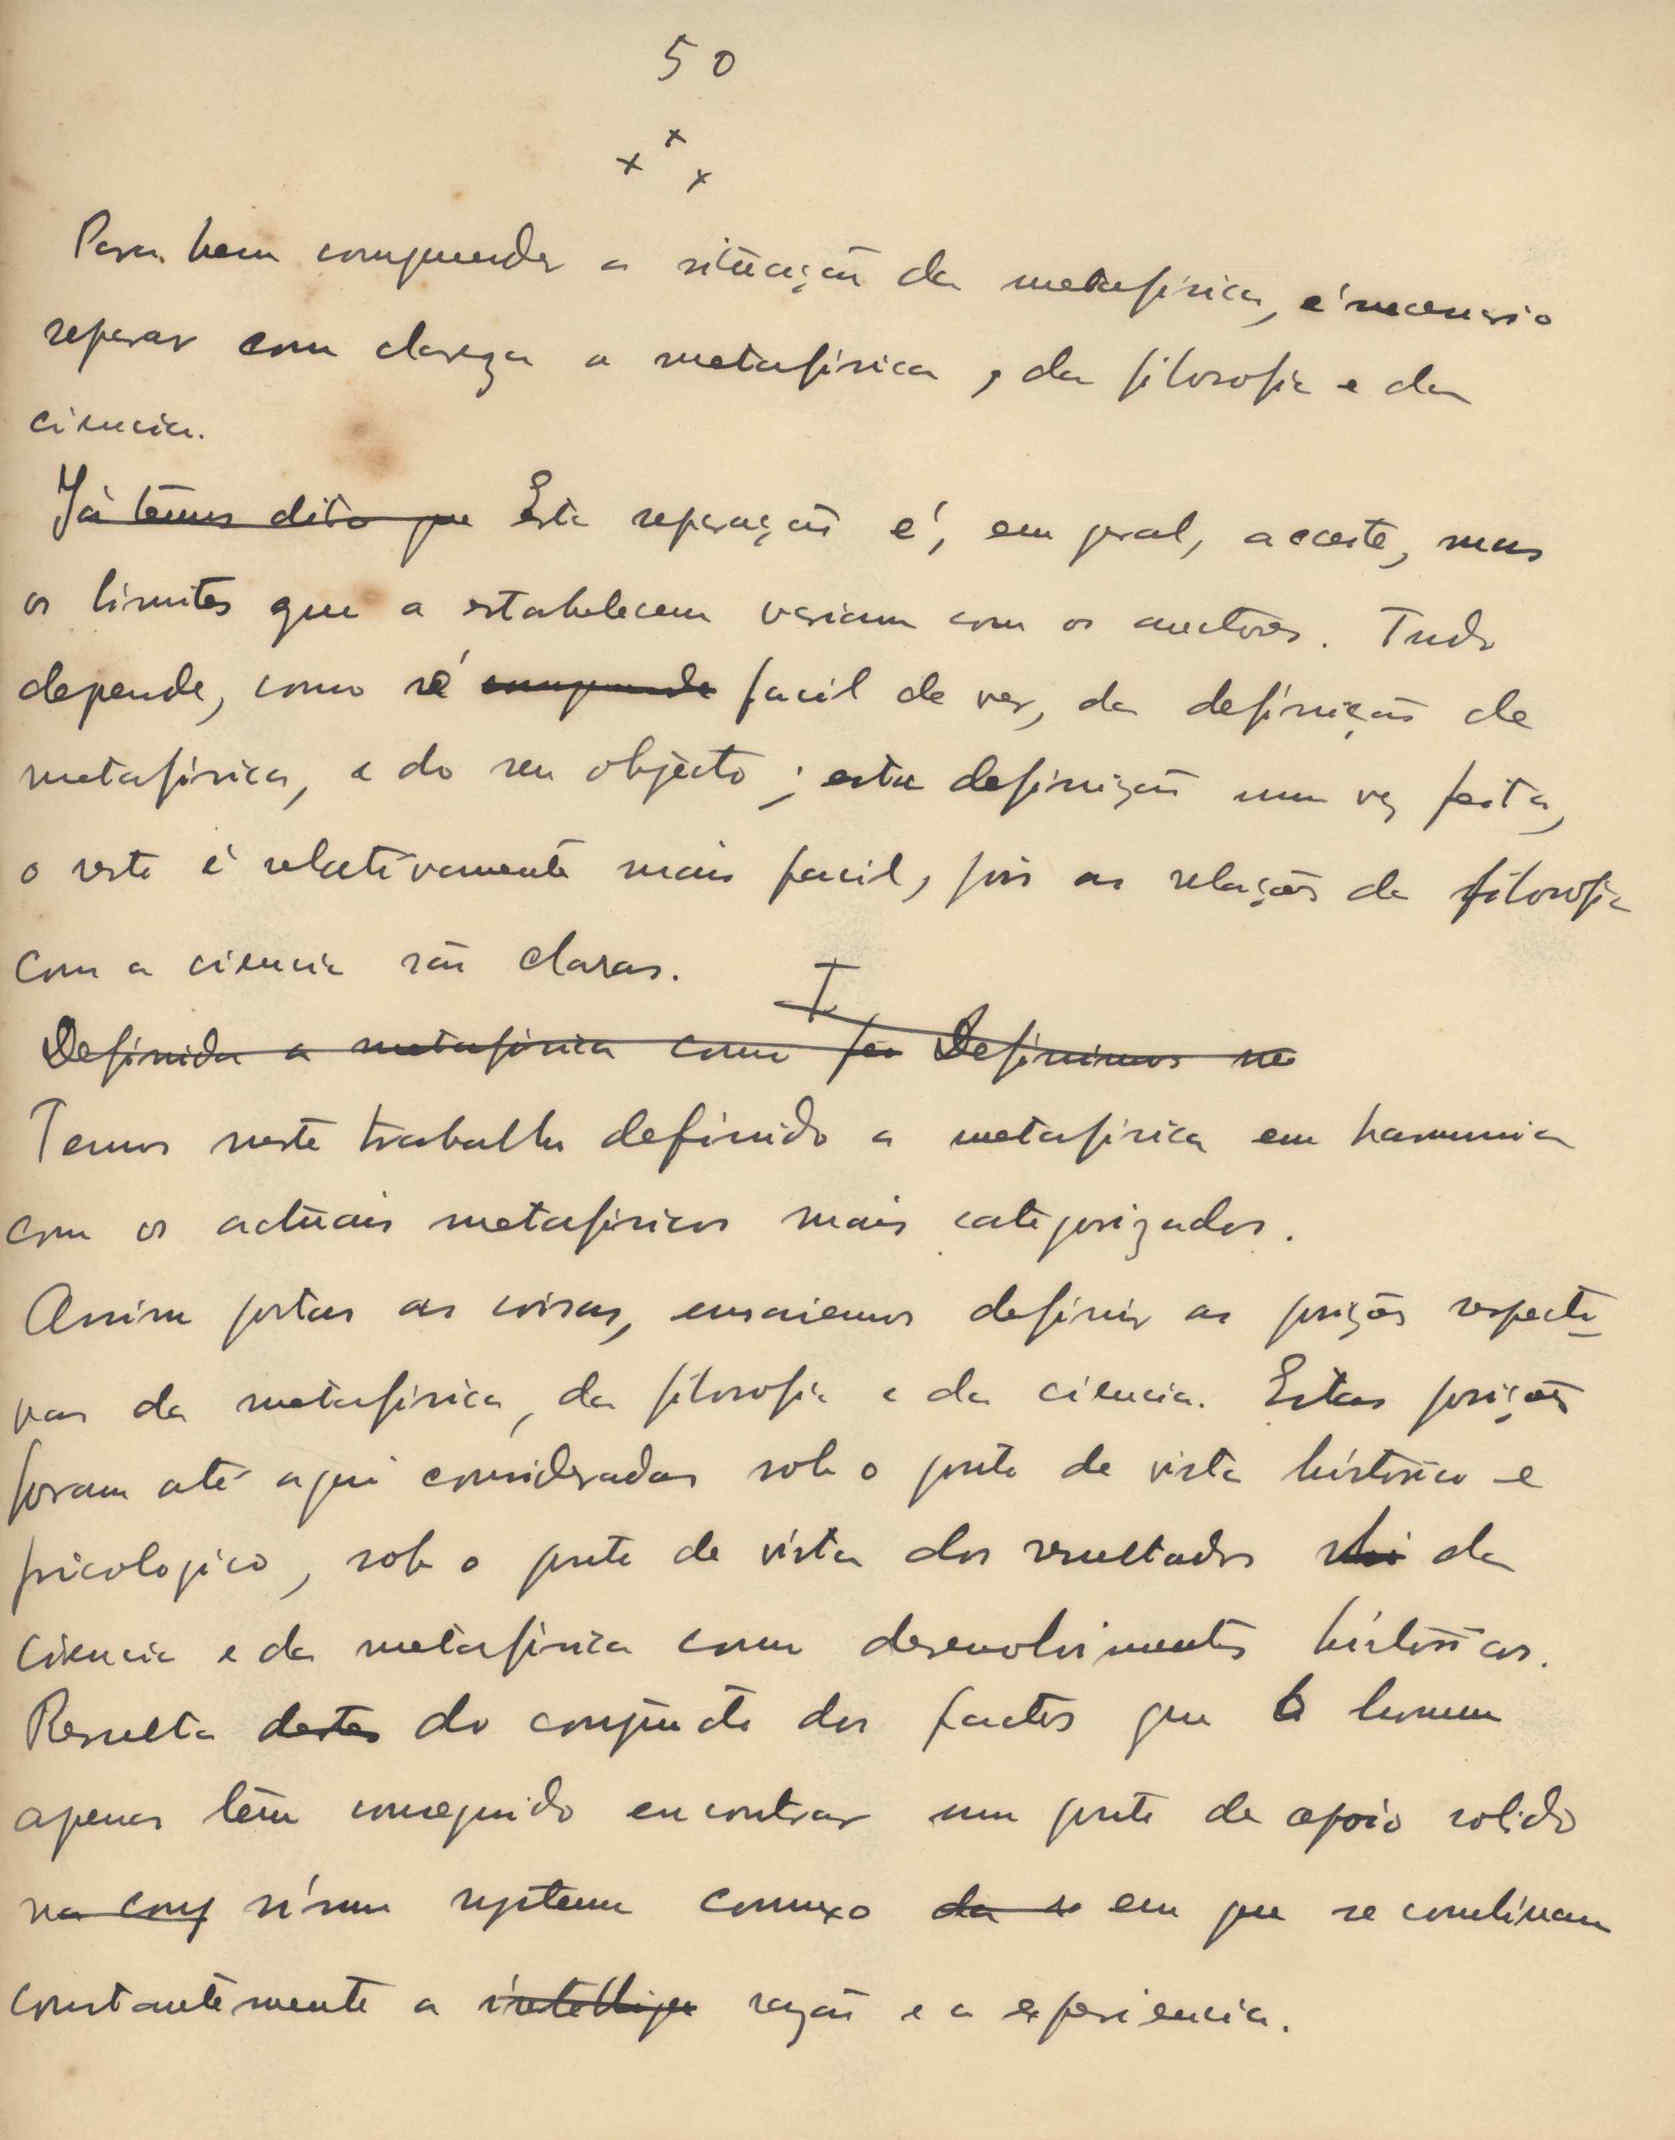 50
x x x
Para bem comprender a situação da metafisica, é necessario
separar com clareza a metafisica, da filosofia e da
ciencia.
Já temos dito que Esta separação é, em geral, acceite, mas
os limites que a estabelecem variam com os auctores. Tudo
depende, como é comprende facil de ver, da definição de
metafisica, e do seu objecto; esta definição uma vez feita,
o resto é relativamente mais facil, pois as relações da filosofia
com a ciencia são claras.
I
Definida a metafisica como foi Definimos ne
Temos neste trabalho definido a metafisica em harmonia
com os actuais metafisicos mais categorizados.
Assim postas as coisas, ensaiemos definir as posições respecti-
vas da metafisica, da filosofia e da ciencia. Estas posições
foram até aqui consideradas sob o ponto de vista historico e
psicologico, sob o ponto de vista dos resultados da
ciencia e da metafisica como desenvolvimentos historicos.
Resulta destes do conjuncto dos factos que o homem
apenas têm conseguido encontrar um ponto de apoio solido
na conj n'um systema connexo da se em que se combinam
constantemente a intellige razão e a experiencia.